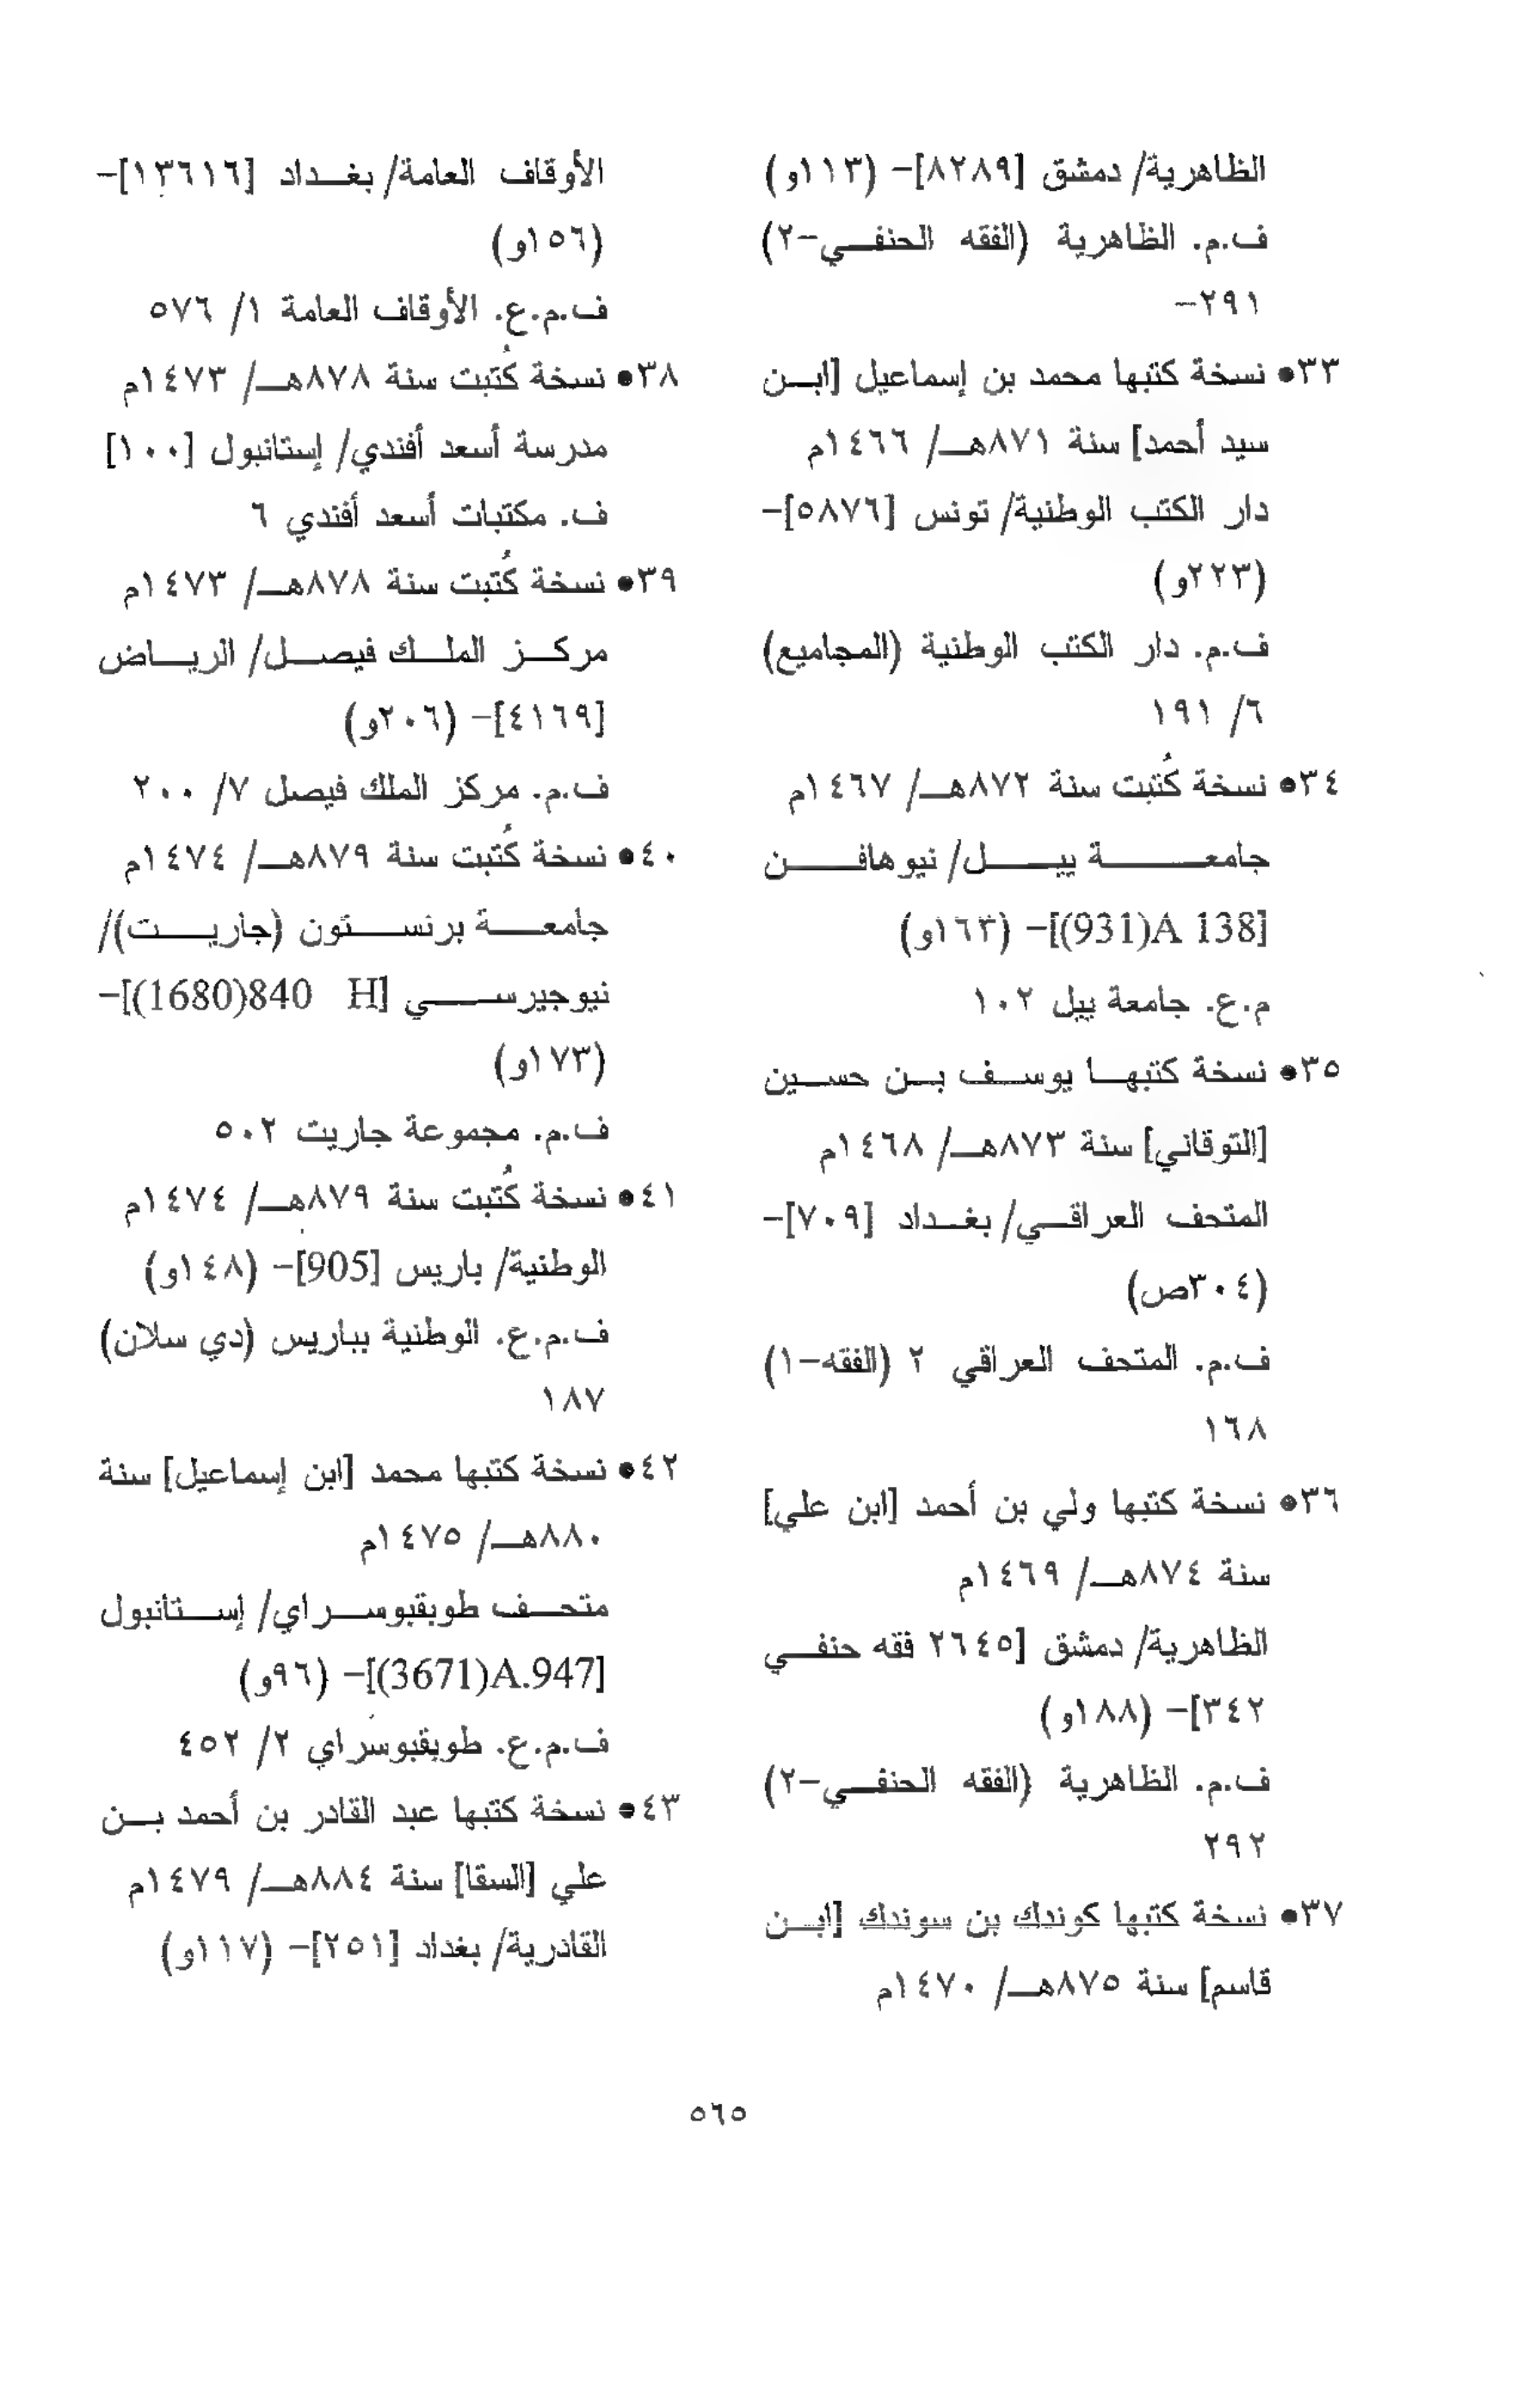 الظاهرية/ دمشق [٨٢٨٩]- (١١٣و)
ف.م. الظاهرية (الفقه الحنفي-٢)
٢٩١-
٣٣● نسخة كتبها محمد بن إسماعيل [ابن
سيد أحمد] سنة ٨٧١هـ/ ١٤٦٦م
دار الكتب الوطنية/ تونس [٥٨٧٦]-
(٢٢٣و)
ف.م. دار الكتب الوطنية (المجاميع)
٦/ ١٩١
٣٤● نسخة كُتبت سنة ٨٧٢هـ/ ١٤٦٧م
جامعة ييل/ نيوهافن
[(931)A 138]- (١٦٣و)
م.ع. جامعة ييل ١٠٢
٣٥● نسخة كتبها يوسف بن حسين
[التوقاني] سنة ٨٧٣هـ/ ١٤٦٨م
المتحف العراقي/ بغداد [٧٠٩]-
(٣٠٤ص)
ف.م. المتحف العراقي ٢ (الفقه-١)
١٦٨
٣٦● نسخة كتبها ولي بن أحمد [ابن علي]
سنة ٨٧٤هـ/ ١٤٦٩م
الظاهرية/ دمشق [٢٦٤٥ فقه حنفي
٣٤٢]- (١٨٨و)
ف.م. الظاهرية (الفقه الحنفي-٢)
٢٩٢
٣٧● نسخة كتبها كوندك بن سوندك [ابن
قاسم] سنة ٨٧٥هـ/ ١٤٧٠م
الأوقاف العامة/ بغداد [١٣٦١٦]-
(١٥٦و)
ف.م.ع. الأوقاف العامة ١/ ٥٧٦
٣٨● نسخة كُتبت سنة ٨٧٨هـ/ ١٤٧٣م
مدرسة أسعد أفندي/ إستانبول [١٠٠]
ف. مكتبات أسعد أفندي ٦
٣٩● نسخة كُتبت سنة ٨٧٨هـ/ ١٤٧٣م
مركز الملك فيصل/ الرياض
[٤١٦٩]- (٢٠٦و)
ف.م. مركز الملك فيصل ٧/ ٢٠٠
٤٠● نسخة كُتبت سنة ٨٧٩هـ/ ١٤٧٤م
جامعة برنستون (جاريت)/
نيوجيرسي [(1680)840 H]-
(١٧٣و)
ف.م. مجموعة جاريت ٥٠٢
٤١● نسخة كُتبت سنة ٨٧٩هـ/ ١٤٧٤م
الوطنية/ باريس [905]- (١٤٨و)
ف.م.ع. الوطنية بباريس (دي سلان)
١٨٧
٤٢● نسخة كتبها محمد [ابن إسماعيل] سنة
٨٨٠هـ/ ١٤٧٥م
متحف طوبقبوسراي/ إستانبول
[(3671)A.947]- (٩٦و)
ف.م.ع. طوبقبوسراي ٢/ ٤٥٢
٤٣● نسخة كتبها عبد القادر بن أحمد بن
علي [السقا] سنة ٨٨٤هـ/ ١٤٧٩م
القادرية/ بغداد [٢٥١]- (١١٧و)
٥٦٥